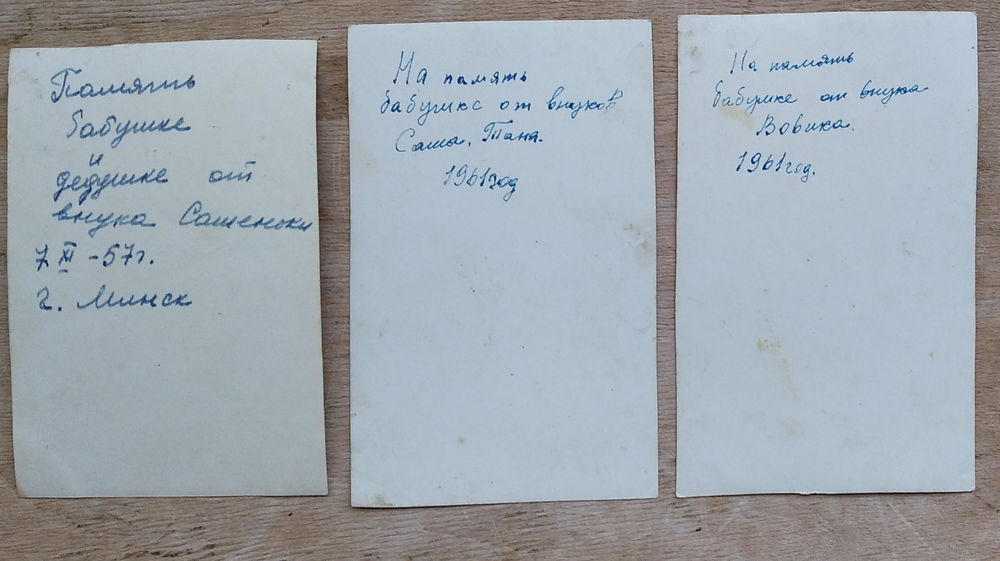 Память
бабушке
и
дедушке от
внука Сашеньки
7 XI -57г.
г. Минск
На память
бабушке от внуков
Саша, Таня.
1961год
На память
бабушке от внука
Вовика.
1961год.